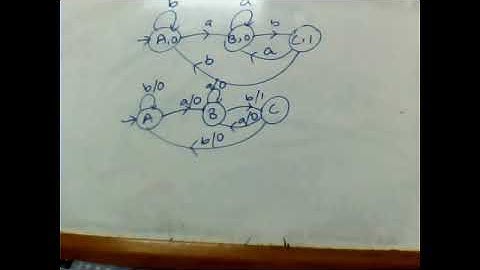 b a
a b
A,0 B,0 C,1
a
b
b/0 a/0
a/0 b/1
A B C
a/0
b/0